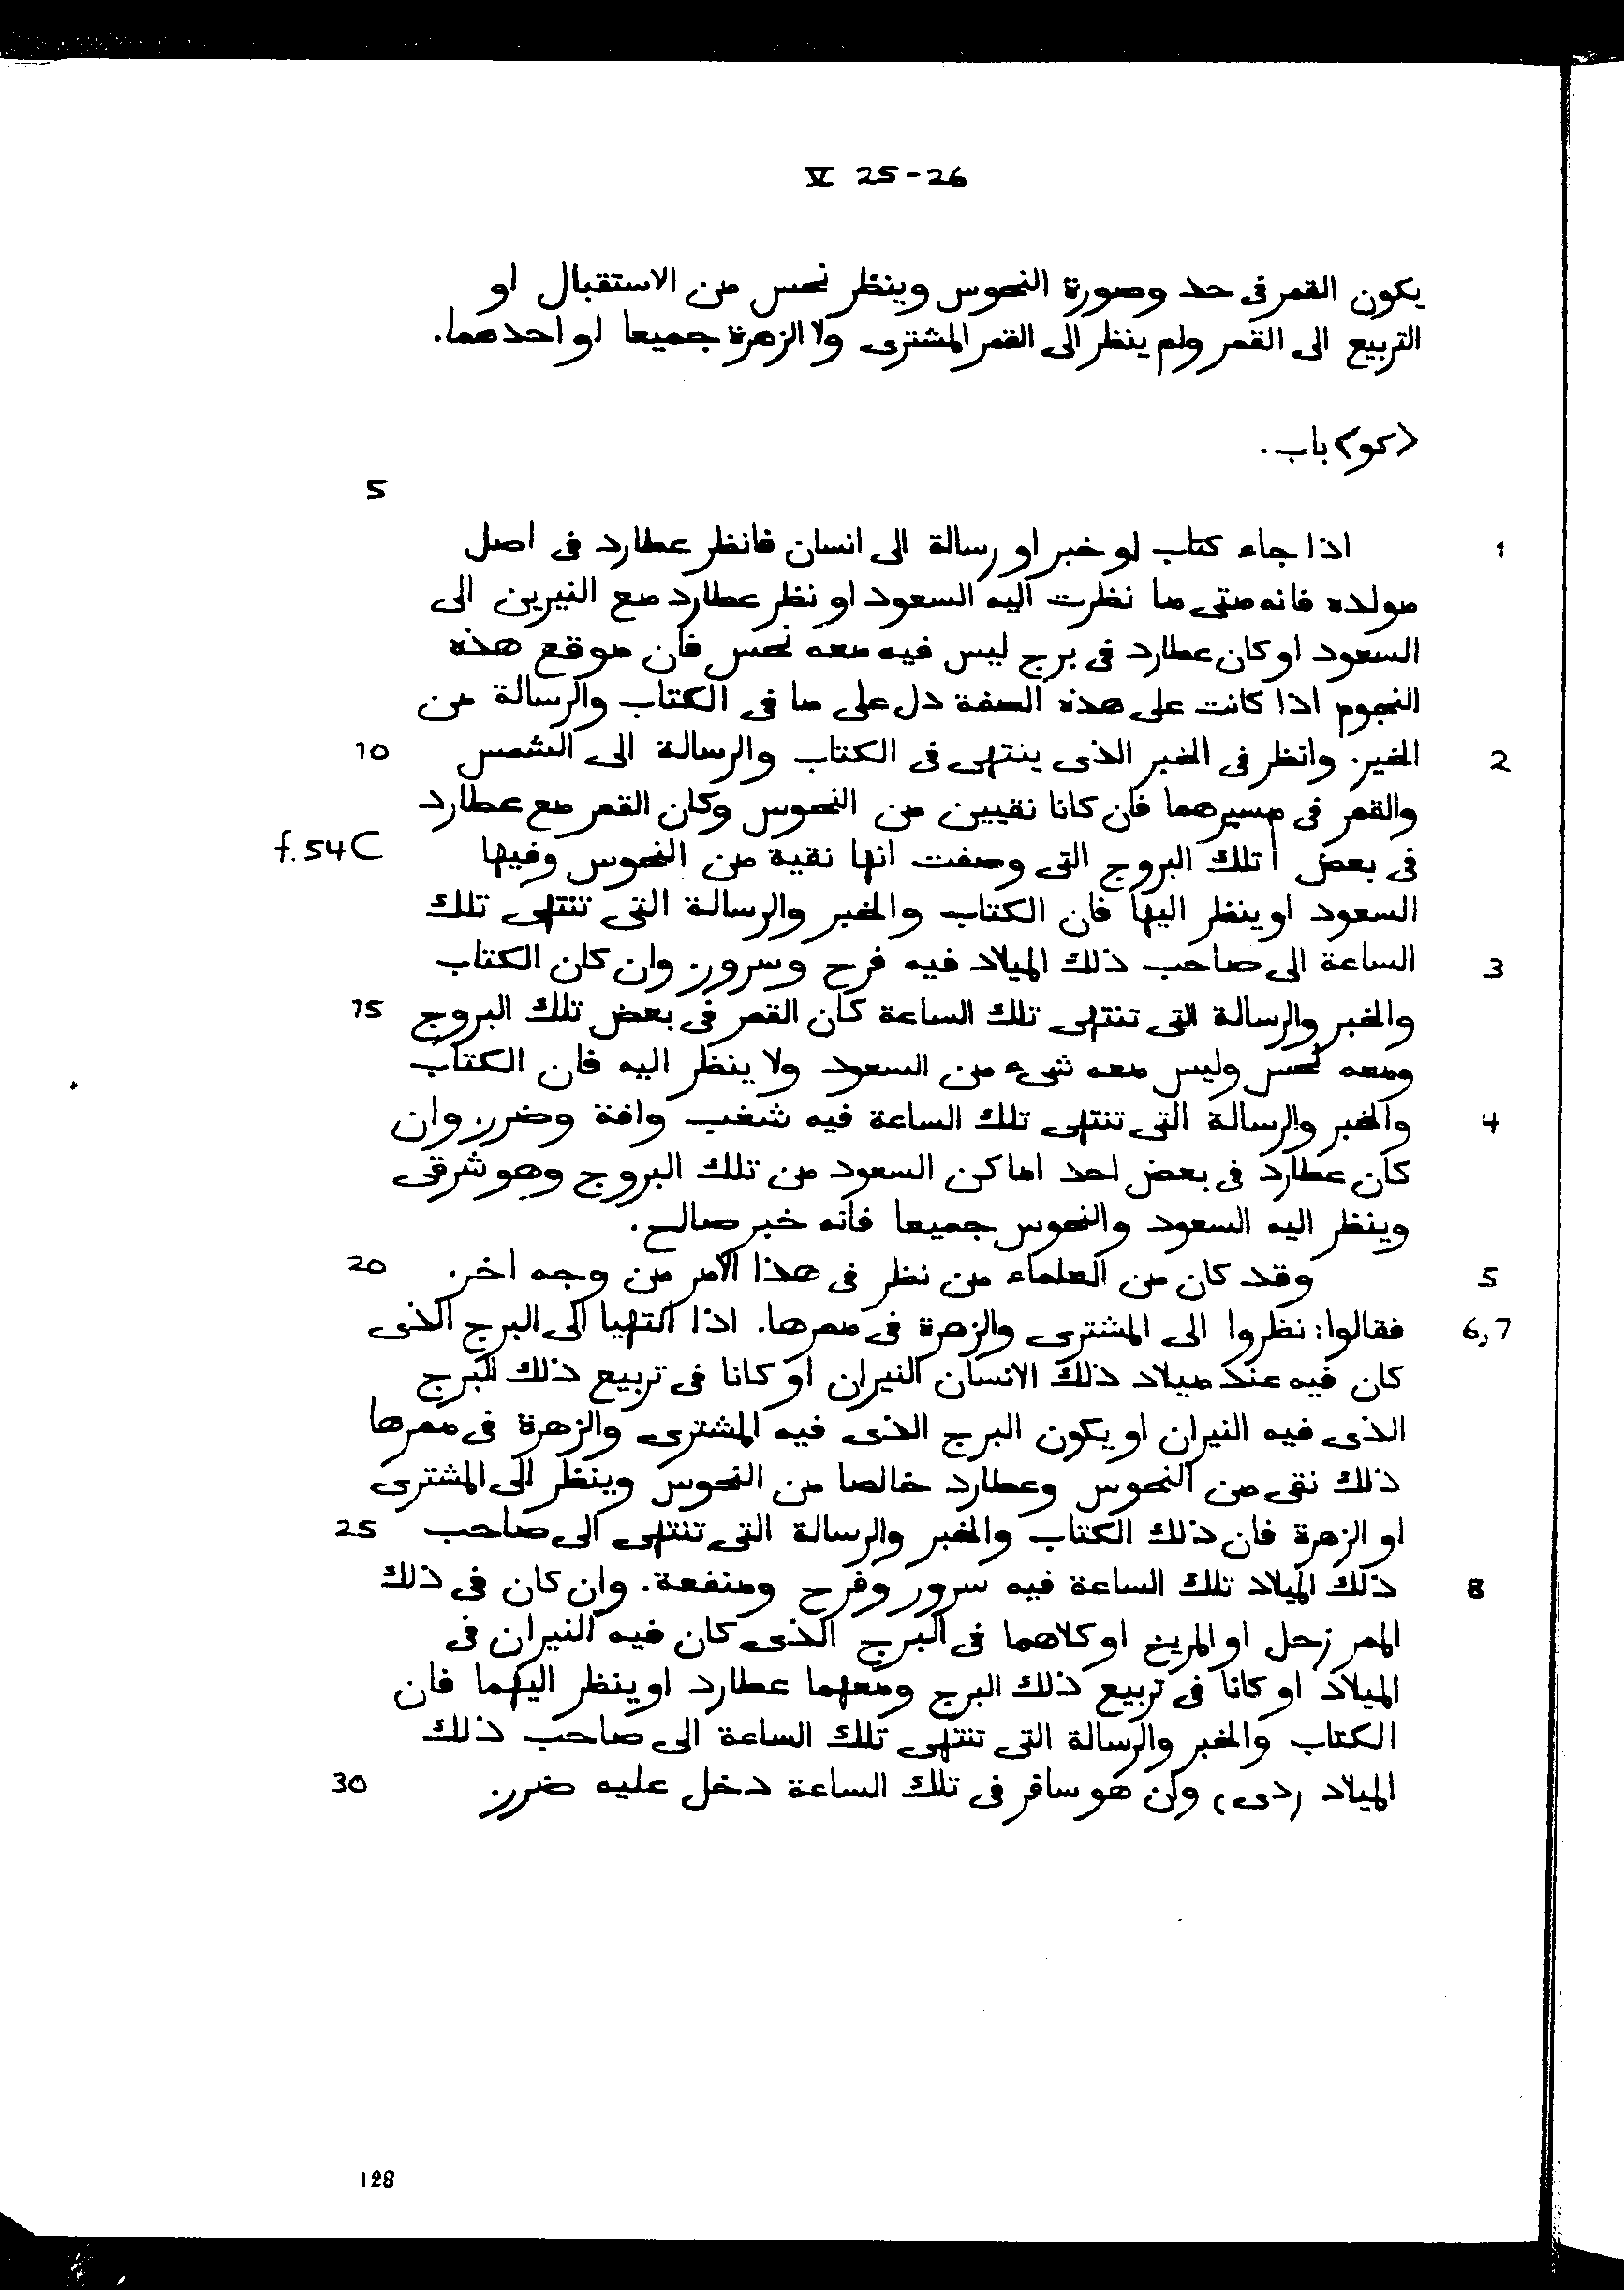 V 25-26
يكون القمر فى حد وصورة النحوس وينظر نحس من الاستقبال او
التربيع الى القمر ولم ينظر الى القمر المشترى ولا الزهرة جميعا او احدهما.
<كو> باب.
5
1 اذا جاء كتاب او خبر او رسالة الى انسان فانظر عطارد فى اصل
مولده فانه متى ما نظرت اليه السعود او نظر عطارد مع النيرين الى
السعود او كان عطارد فى برج ليس فيه معه نحس فان موقع هذه
النجوم اذا كانت على هذه الصفة دل على ما فى الكتاب والرسالة من
2 الخير. وانظر فى الخبر الذى ينتهى فى الكتاب والرسالة الى الشمس 10
والقمر فى مسيرهما فان كانا نقيين من النحوس وكان القمر مع عطارد
فى بعض | تلك البروج التى وصفت انها نقية من النحوس وفيها f.54C
السعود او ينظر اليها فان الكتاب والخبر والرسالة التى تنتهى تلك
3 الساعة الى صاحب ذلك الميلاد فيه فرح وسرور. وان كان الكتاب
والخبر والرسالة التى تنتهى تلك الساعة كان القمر فى بعض تلك البروج 15
ومعه نحس وليس معه شىء من السعود ولا ينظر اليه فان الكتاب
4 والخبر والرسالة التى تنتهى تلك الساعة فيه شغب وافة وضرر. وان
كان عطارد فى بعض احد اماكن السعود من تلك البروج وهو شرقى
وينظر اليه السعود والنحوس جميعا فانه خبر صالح.
5 وقد كان من العلماء من نظر فى هذا الامر من وجه اخر. 20
6,7 فقالوا: نظروا الى المشترى والزهرة فى ممرها. اذا انتهيا الى البرج الذى
كان فيه عند ميلاد ذلك الانسان النيران او كانا فى تربيع ذلك البرج
الذى فيه النيران او يكون البرج الذى فيه المشترى والزهرة فى ممرها
ذلك نقى من النحوس وعطارد خالصا من النحوس وينظر الى المشترى
او الزهرة فان ذلك الكتاب والخبر والرسالة التى تنتهى الى صاحب 25
8 ذلك الميلاد تلك الساعة فيه سرور وفرح ومنفعة. وان كان فى ذلك
الممر زحل او المريخ او كلاهما فى البرج الذى كان فيه النيران فى
الميلاد او كانا فى تربيع ذلك البرج ومعهما عطارد او ينظر اليهما فان
الكتاب والخبر والرسالة التى تنتهى تلك الساعة الى صاحب ذلك
الميلاد (ردى) وان هو سافر فى تلك الساعة دخل عليه ضرر. 30
128